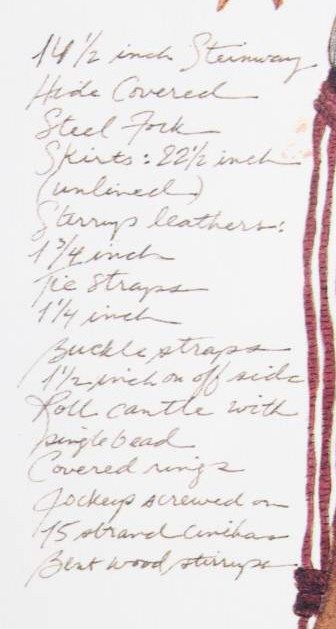 14 1/2 inch Steinway
Hide Covered
Steel Fork
Skirts: 22 1/2 inch
(unlined)
Sterrup leathers:
1 3/4 inch
Tie Straps
1 1/4 inch
Buckle straps
1 1/2 inch on off side
Roll cantle with
single bead
Covered rings
Jockeys screwed on
15 strand Cinchas
Bent wood stirrups